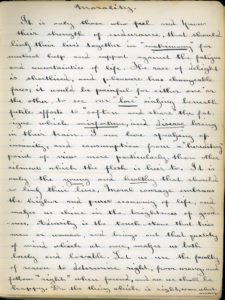 Morality.
It is only those who feel and know
their strength of endurance, that should
link their lives together in matrimony for
mutual help and support against the fatigue
and uncertainties of life. The cup of delight
is short lived, and pleasure has changeable
faces; it would be painful for either one or
the other, to see our love sinking beneath
futile efforts to soften and share the fat-
igue which and disease bring
in their train. I am here speaking of
insanity, and consumption from a "hereditary"
point of view more particularly than other
ailments which the flesh is heir to. It is
only the young and healthy that should
so link their lives. Moral courage embraces
the higher and purer economy of life, and
makes us shine in the brightness of good-
ness. Adversity is the touch stone that tries
men or women, and bring out that quality
of mind which at once makes us both
lovely and lovable. Let us use the faculty
of reason to determine right from wrong, and
follow right when found, and we shall be
happy. Do the thing which is right,